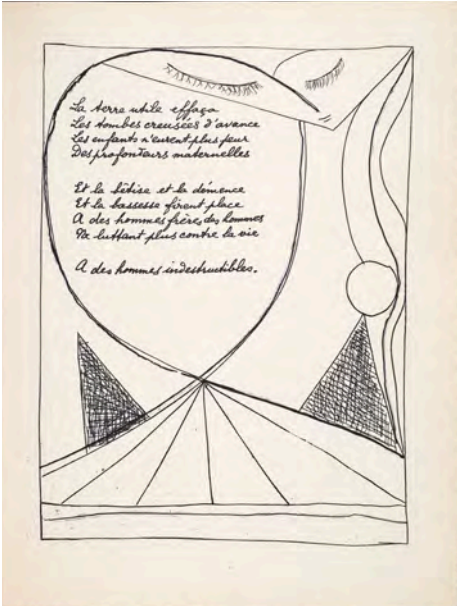 La terre utile effaça
Les tombes creusées d'avance
Les enfants n'eurent plus peur
Des profondeurs maternelles
Et la bêtise et la démence
Et la bassesse firent place
A des hommes frères des hommes
Ne luttant plus contre la vie
A des hommes indestructibles.